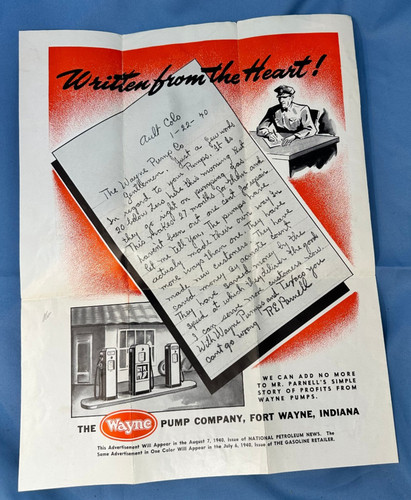 Written from the Heart!
Ault Colo
1-22-40
The Wayne Pump Co
Gentlemen. Just a few words
In regard to your Pumps. It is
20 below zero here this morning But
they go right on pumping gas.
This makes 27 months for Pelder and
haven't been out one cent for repair
let me tell you. The pumps have
actualy made their own way in
more ways than one. They have
made new customers. They have
saved money by accurate
They have saved money by the
speed at which they deliver the goods
I can serve more customers now.
With Wayne Pumps and Texaco you
cant go wrong
R.E. Parnell
WE CAN ADD NO MORE
TO MR. PARNELL'S SIMPLE
STORY OF PROFITS FROM
WAYNE PUMPS.
THE Wayne PUMP COMPANY, FORT WAYNE, INDIANA
This Advertisement Will Appear in the August 7, 1940, Issue of NATIONAL PETROLEUM NEWS. The
Same Advertisement in One Color Will Appear in the July 6, 1940, Issue of THE GASOLINE RETAILER.